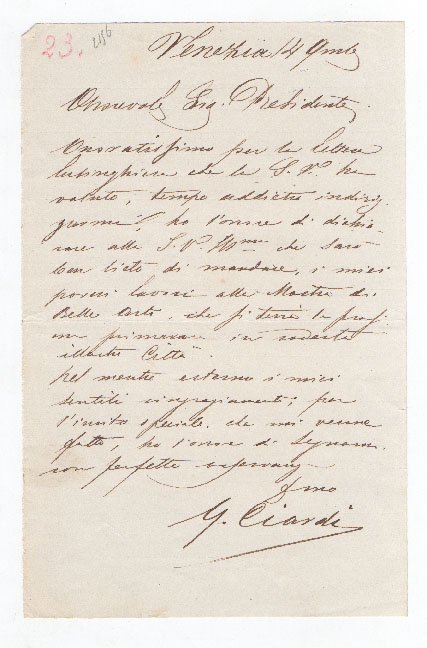 23.
2156
Venezia 14 9mbre
Onorevole Sig. Presidente,
Onoratissimo per la lettera
lusinghiera che la S. V. ha
voluto, tempo addietro indiriz
zarmi, ho l'onore di dichia
rare alla S. V. Illma che sarò
ben lieto di mandare, i miei
poveri lavori alla Mostra di
Belle Arti, che si terrà la pross
ima primavera in codesta
illustre Città.
Nel mentre esterno i miei
sentiti ringraziamenti, per
l'invito speciale, che mi venne
fatto, ho l'onore di segnarmi
con perfetta osservanza
G. Ciardi